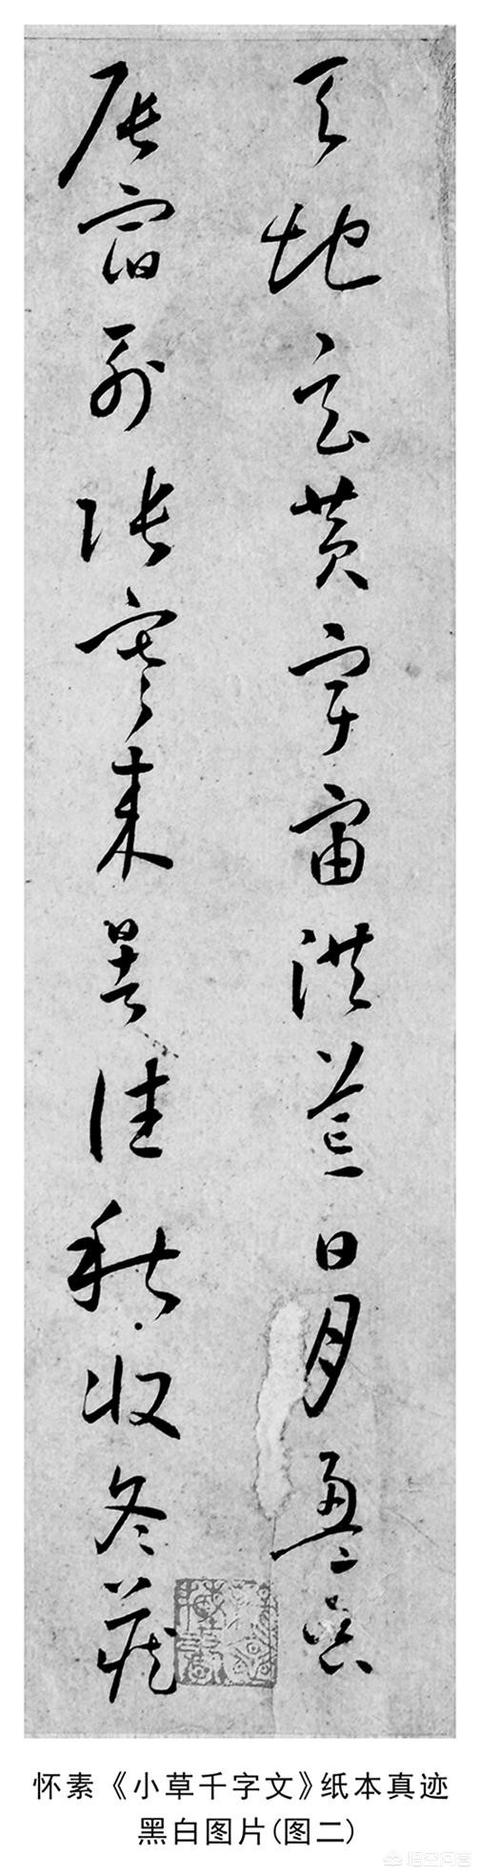 天地玄黄宇宙洪荒日月盈昃
辰宿列張寒来暑往秋收冬藏
怀素《小草千字文》纸本真迹
黑白图片(图二)
悟空问答